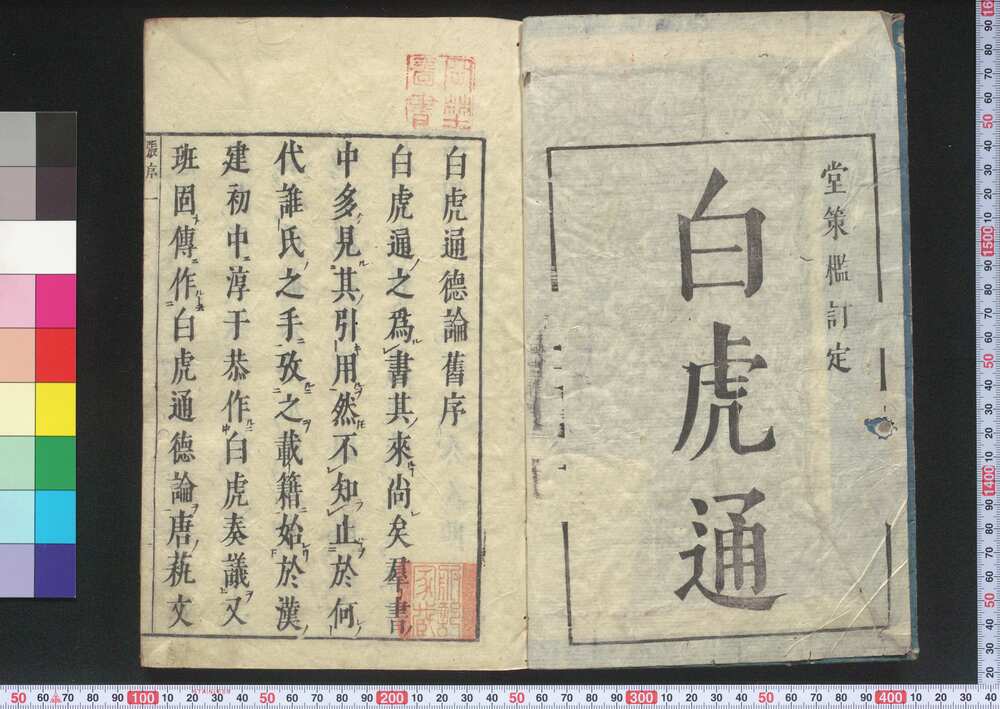 堂策檻訂定
白虎通
白虎通德論舊序
白虎通之爲書其來尚矣羣書
中多見其引用然不知止於何
代誰氏之手攷之載籍始於漢
建初中淳于恭作白虎奏議又
班固傳作白虎通德論唐萟文
張序 一